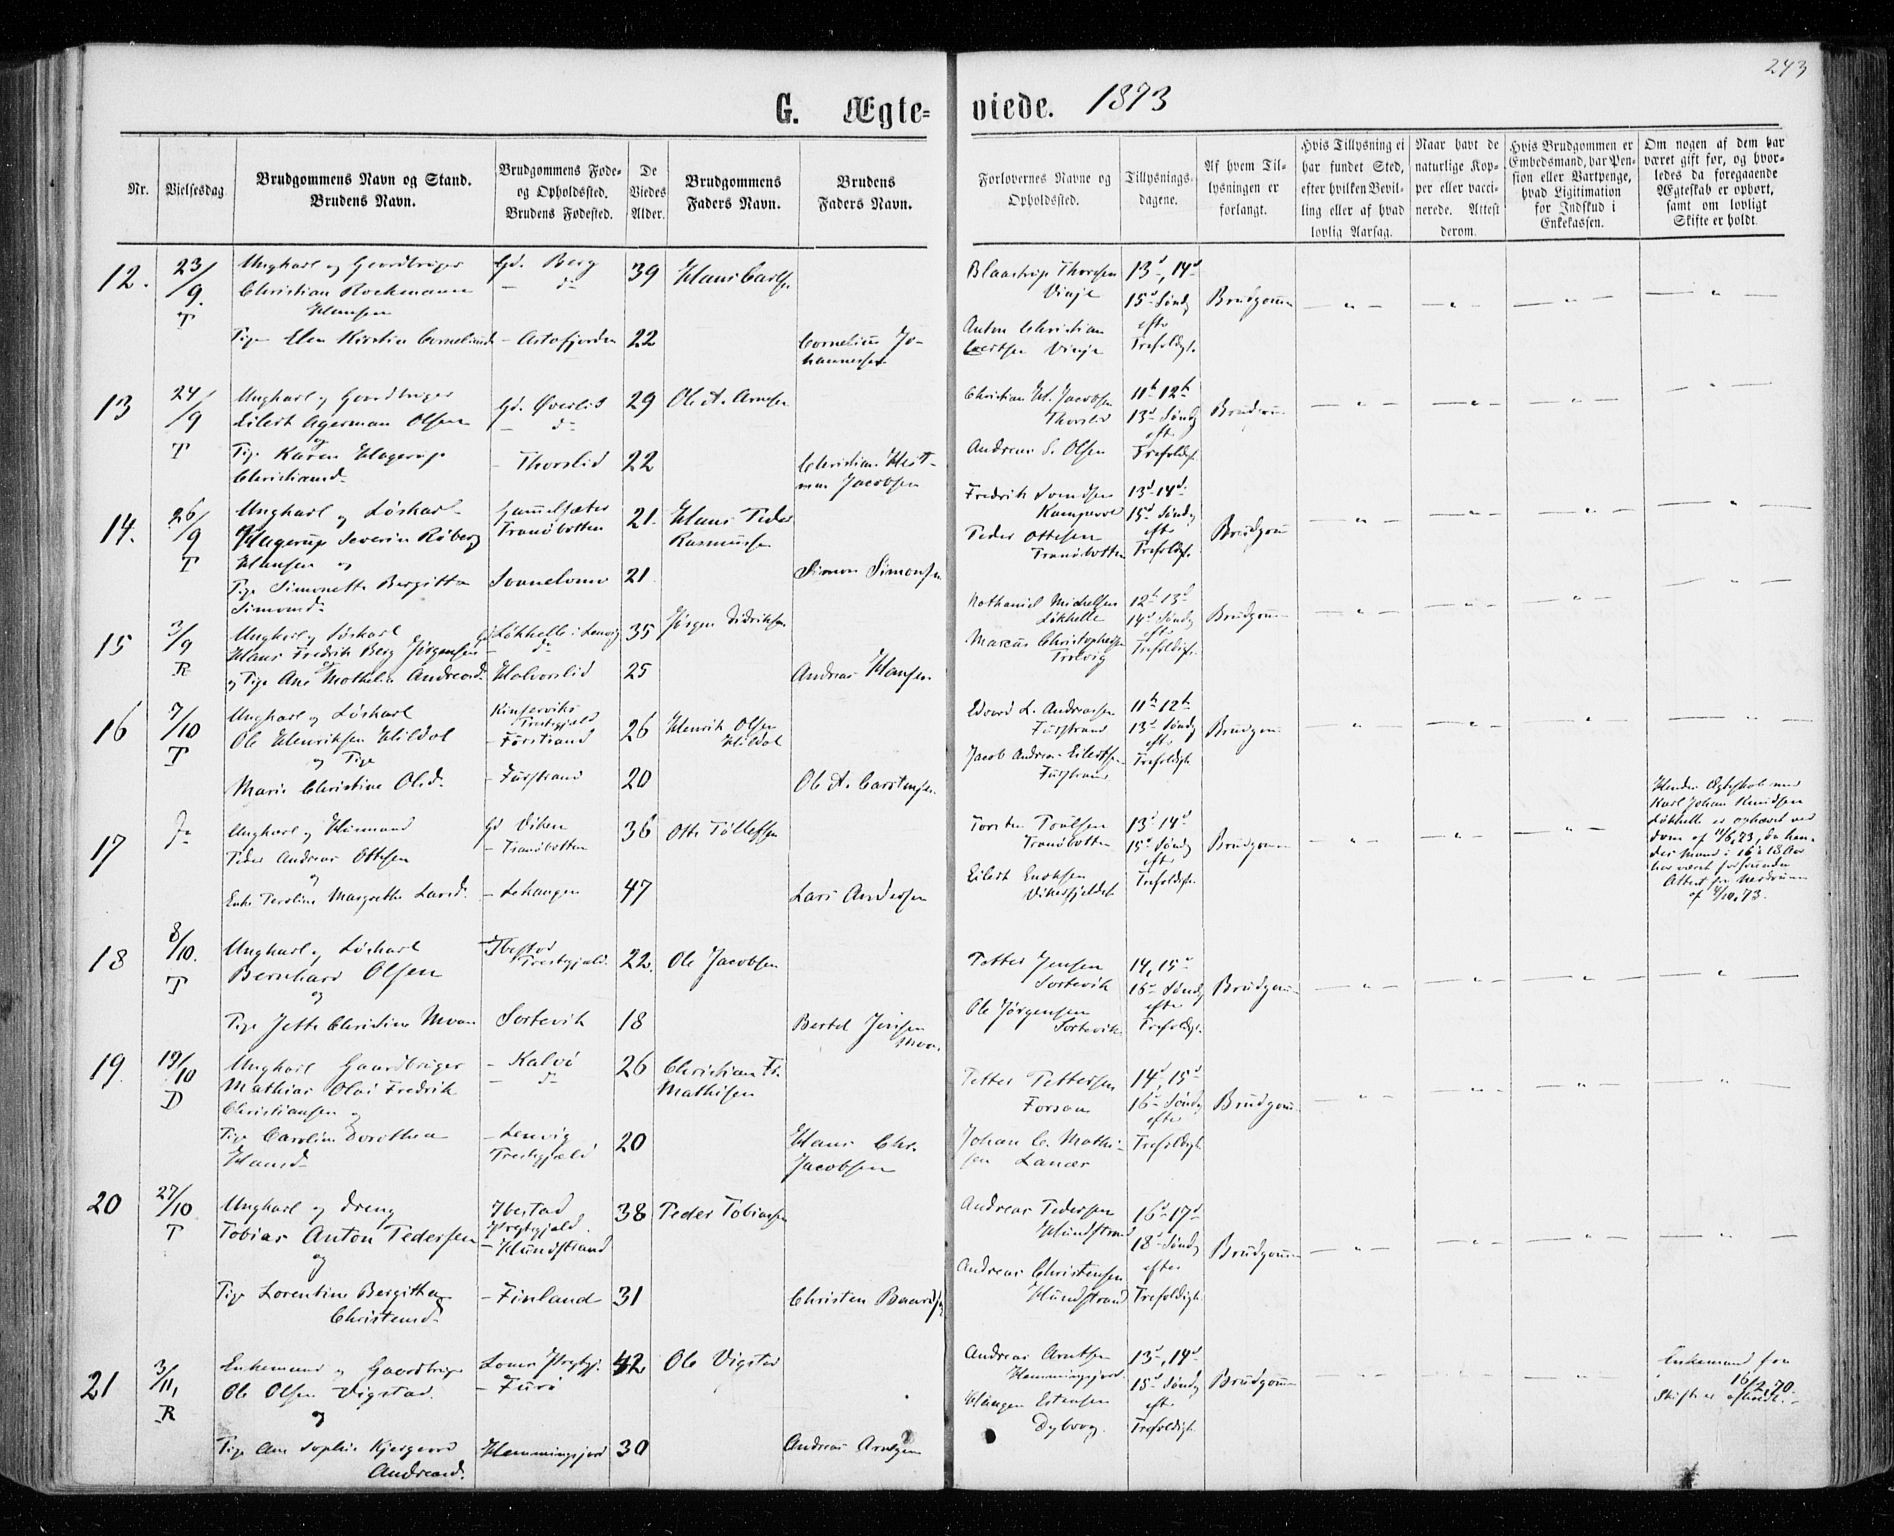 243
G. Ægte=viede. 1873
Nr.
Vielsesdag.
Brudgommens Navn og Stand.
Brudens Navn.
Brudgommens Føde-
og Opholdssted.
Brudens Fødested.
De
Viedes
Alder.
Brudgommens
Faders Navn.
Brudens
Faders Navn.
Forlovernes Navne og
Opholdssted.
Tillysnings-
dagene.
Af hvem Til-
lysningen er
forlangt.
Hvis Tillysning ei
har fundet Sted,
efter hvilken Bevil-
ling eller af hvad
lovlig Aarsag.
Naar havt de
naturlige Kop-
per eller vacci-
nerede. Attest
derom.
Hvis Brudgommen er
Embedsmand, har Pen-
sion eller Vartpenge,
hvad Ligitimation
for Indskud i
Enkekassen.
Om nogen af dem har
været gift før, og hvor-
ledes da foregaaende
Ægteskab er ophørt,
samt om lovligt
Skifte er holdt.
12. 23/9. T
Ungkarl og Gaardbruger
Christian Hansen
Gd. Berg
39
Pige Elen Kirstine Cornelius
Astafjorden 22
Cornelius Jo-
hannessen
Blaastrup Thoresen
Vinje
Anton Christian
Vinje
13d, 14d
15d Søndg
efter
Trefoldigh.
Brudgommen
13 24/9 T
Ungkarl og Gaardbruger
Eilert Agerman Olsen
og
Pige Karen Hagerup
Christiansd.
Gd. Øverlid 29
Ole A. Arnsen
Thorslid 22
Jacobsen
Christian H. Jacobsen
Thorslid
Andreas S. Olsen
11te 12te
13d Søndg
eft.
Trefoldigh.
14. 26/9 T
Ungkarl og Løskarl
Hagerup Severin Røberg
Hansen og
Pige Simonette Bergitta
Simonsd.
Gammelsæter
Tranøbotten 21.
Hans Peder
Rasmussen
21
Simon Simonsen
Fredrik Svendsen
Kampevold
Peder Ottesen
Tranøbotten
13d 14d
15d Søndg
eft
Trefoldigh.
Brudgom
15 3/9 R
Ungkarl og Løskarl
Hans Fredrik Berg Jørgensen
og Pige Ane Mathilia Andreasd.
Gd. Løkhelle i Lenvig 35
Jørgen Didriksen
Halvorslid 25
Andreas Hansen
Nathaniel Michelsen
Løkhelle
Marcus Christophersen
12te 13d
14d Søndg
eft
Trefoldigh.
Brudgom
16 7/10 T
Ungkarl og Løskarl
Ole Henriksen Hildal
og Pige
Marie Christine Olsd.
Kinserviks
Prestgjæld
Forstrand 26
Henrik Olsen
Hildal
Furstrand 20
Ole A. Carstensen
Edvard L. Andreassen
Furstrand
Jacob Andreas Eilertsen
Furstrand
11te 12te
13d Søndg
eft
Trefoldigh
Brudgom
17
Ungkarl og Huusmand
Peder Andreas Ottesen
og
Enke Peroline Margrethe Larsd.
Gd Viken
Tranøbotten 36
Otte Tollefsen
47
Lars Andersen
Torsten Poulsen
Tranøbotten
Eilert Enoksen
13d 14d
15d Søndg
eft
Trefoldigh.
Brudgom
Hendes Ægteskab med
Karl Johan Knudsen
Løkhelle er ophævet ved
Dom af 11/6 73, da hen-
des Mand i 16 à 18 Aar
har været forsvunden
Attest
af 4/10.73.
18 8/10. T
Ungkarl og Løskarl
Bernhard Olsen
og
Pige Jette Christine Moan
Ibestad
Prestgjæld. 22.
Ole Jacobsen
Sortevik 18
Bertel Jensen
Moan
Petter Jensen
Sortevik
Ole Jørgensen
Sortevik
14, 15d
16d Søndg
efter
Trefoldigh.
Brudgom
19. 19/10 D
Ungkarl Gaardbruger
Mathias Olai Fredrik
Christiansen og
Pige Caroline Dorothea
Hansd.
Kalvø 26
Christian Fr.
Mathisen
Lenvig
Prestgjæld 20
Hans Chr.
Jacobsen
Petter Pettersen
Forsan
Johan C. Mathi-
sen Lanæs
14d, 15d
16d Søndg
efter
Trefoldigh
Brudgom
20 27/10 T
Ungkarl og Dreng
Tobias Anton Pedersen
og
Pige Lorentine Bergitha
Christensd.
Ibestad
Prstgjæld.
Hundstrand 38
Peder Tobiassen
Finland 31
Christen Baardsen
Andreas Pedersen
Hundstrand
Andreas Christensen
Hundstrand
16d 17d
18d Søndg
efter
Trefoldigh.
Brudgommen
21 3/11, R
Enkemand og Gaardbruger
Ole Olsen Vigstad.
og
Pige Ane Sophie Kjergaard
Andreasd.
Loms Prstgj.
Furø 42
Ole Vigstad
Hemmingsjord 30
Andreas Arntzen
Andreas Arntsen
Hemmingsjord.
Haagen Estensen
Dyborg.
13d, 14d
15d Søndg
eft
Trefoldigh
Brudgom
Enkemand fra
16/2.70.
Skifte er afholdt.